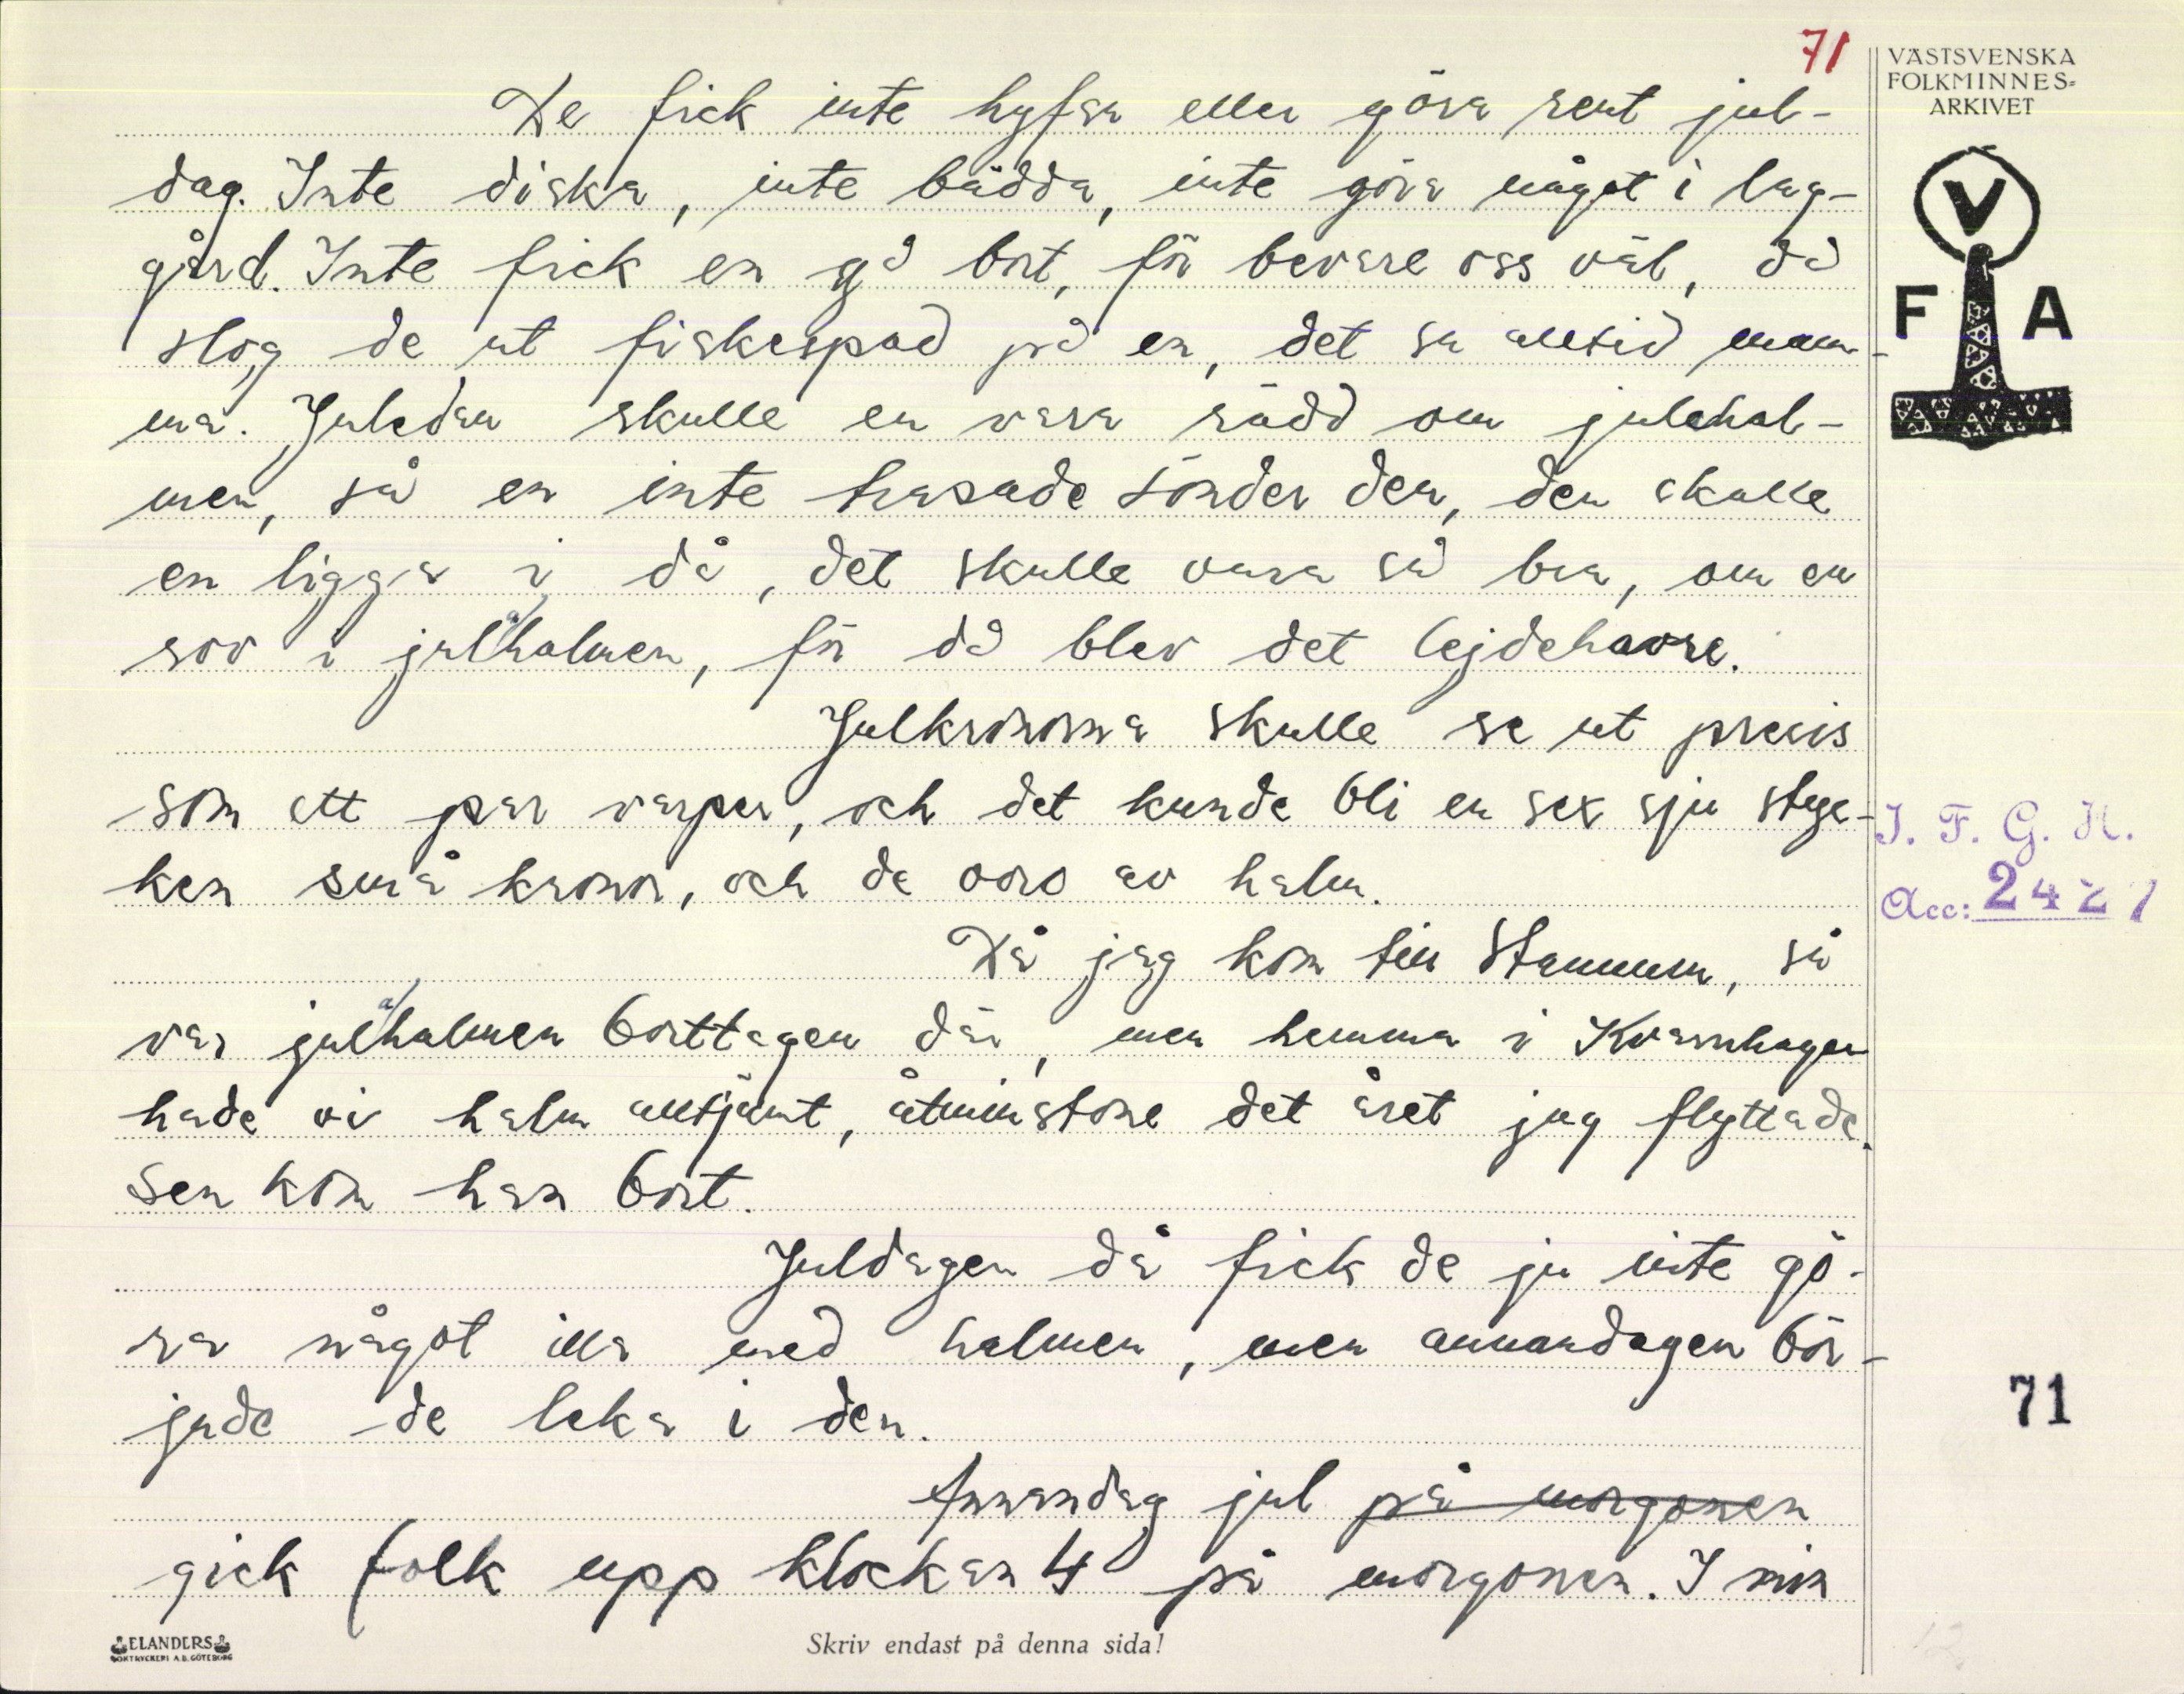 71
VÄSTSVENSKA
FOLKMINNES-
ARKIVET
V
F A
De fick inte hyfsa eller göra rent jul-
dag. Inte diska, inte bädda, inte göra något i lag-
gård. Inte fick en gå bort, för bevare oss väl, då
slog de ut fiskespad på en, det sa alltid mam-
ma. Juledan skulle en vara rädd om julehal-
men, så en inte trasade sönder den, den skulle
en ligga i då, det skulle vara så bra, om en
sov i julahalmen, för då blev det lejdehavre.
Julkronorna skulle se ut precis
som ett par varpor, och det kunde bli en sex sju styc-
ken små kronor, och de voro av halm.
Då jag kom till Stammen, så
var julahalmen borttagen där, men hemma i Kvarnhagen
hade vi halm alltjämt, åtminstone det året jag flyttade.
Sen kom han bort.
Juldagen då fick de ju inte gö-
ra något illa med halmen, men annandagen bör-
jade de leka i den.
Annandag jul på morgonen
gick folk upp klockan 4 på morgonen. I min
I. F. G. H.
Acc: 2427
71
ELANDERS
BOKTRYCKERI A.B. GÖTEBORG
Skriv endast på denna sida!
12.